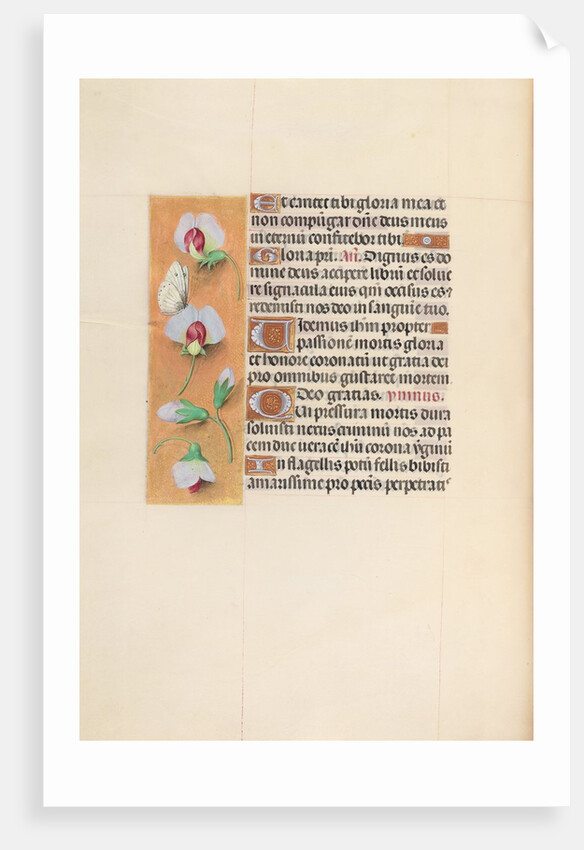 Et cantet tibi gloria mea et
non compūgar dn̄e deus meus
in eternū confitebor tibi.
Gloria pr̄i. An̄. Dignus es do
mine deus accipere librū et solue
re signacula eius qm̄ occisus es ⁊
redemisti nos deo in sanguie tuo.
Uidemus ih̄m propter
passionē mortis gloria
et honore coronatū ut gratia dei
pro omnibus gustaret mortem.
Deo gratias. ymnus.
Qui pressura mortis dura
soluisti nexus criminū nos ad pa
cem duc uera cē ih̄u corona ṽginū
In flagellis potū fellis bibisti
amarissime pro pccīs perpetratis